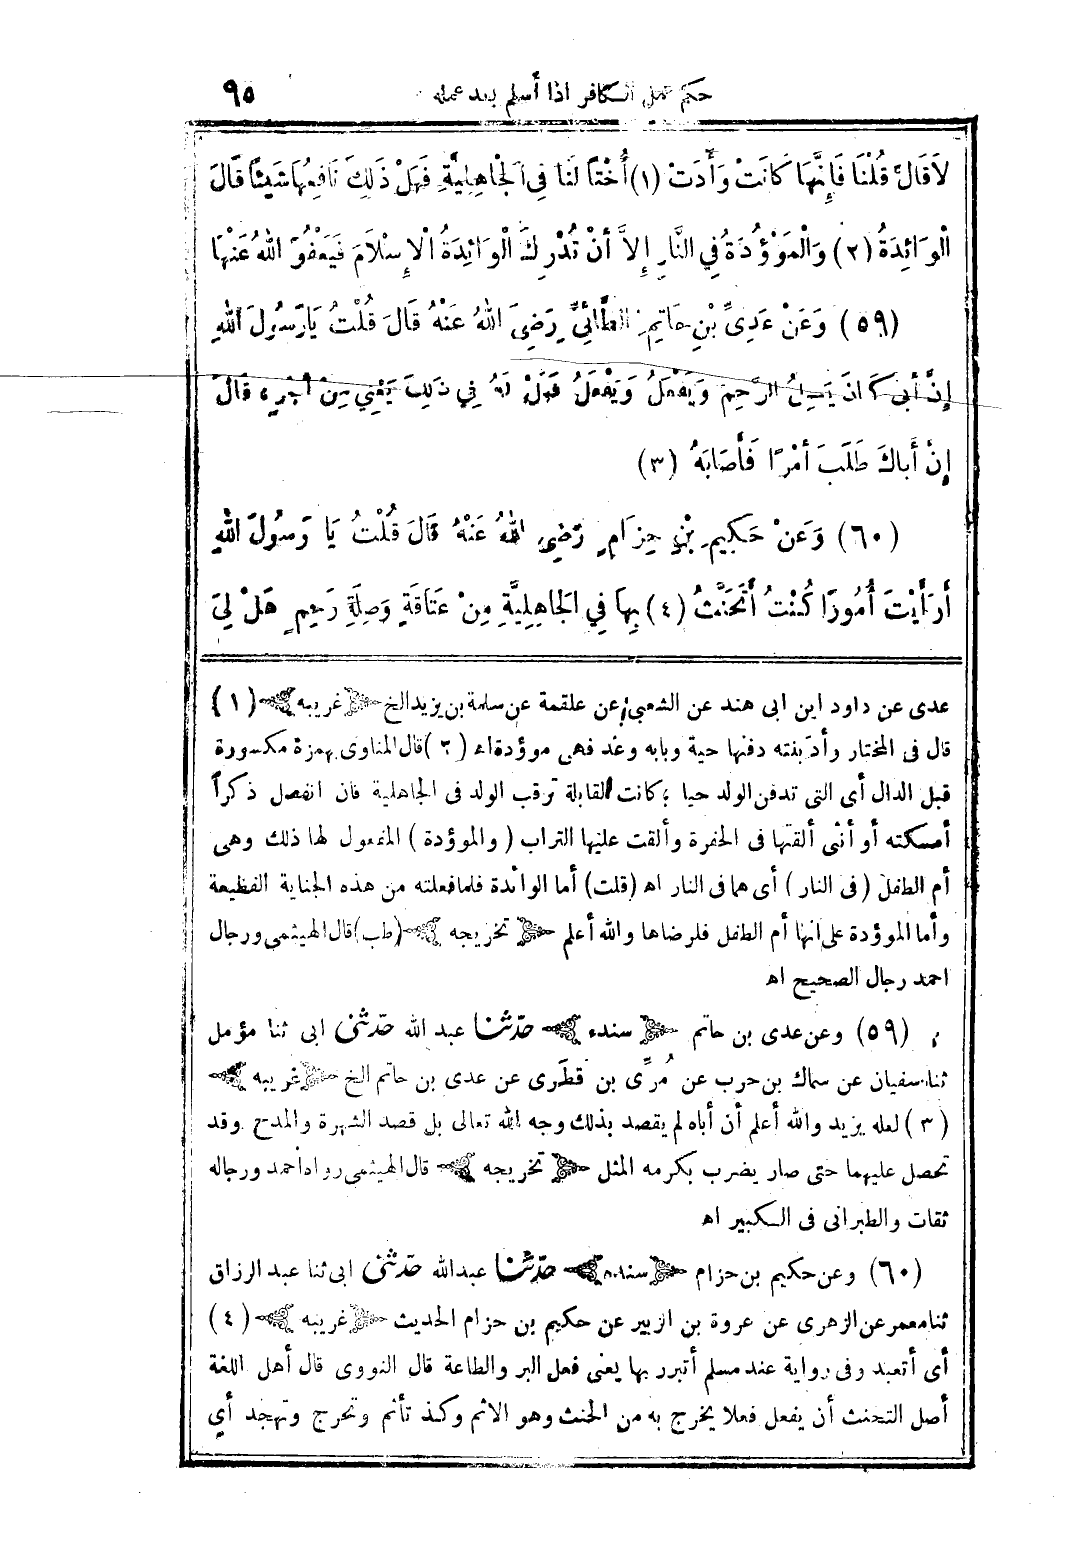 حكم عمل الكافر اذا أسلم بعد عمله ٩٥
لاَ قَالَ قُلْنَا فَإِنَّهَا كَانَتْ وَأَدَتْ (١) أُخْتًا لَنَا فِي الْجَاهِلِيَّةِ فَهَلْ ذَلِكَ نَافِعُهَا شَيْئًا قَالَ
الْوَائِدَةُ (٢) وَالْمَوْؤُدَةُ فِي النَّارِ إِلاَّ أَنْ تُدْرِكَ الْوَائِدَةُ الْإِسْلاَمَ فَيَعْفُوَ اللهُ عَنْهَا
(٥٩) وَعَنْ عَدِيِّ بْنِ حَاتِمٍ الطَّائِيِّ رَضِيَ اللهُ عَنْهُ قَالَ قُلْتُ يَارَسُولَ اللهِ
إِنَّ أَبِي كَانَ يَصِلُ الرَّحِمَ وَيَفْعَلُ وَيَفْعَلُ فَهَلْ لَهُ فِي ذَلِكَ يَعْنِي مِنْ أَجْرٍ، قَالَ
إِنَّ أَبَاكَ طَلَبَ أَمْرًا فَأَصَابَهُ (٣)
(٦٠) وَعَنْ حَكِيمِ بْنِ حِزَامٍ رَضِيَ اللهُ عَنْهُ قَالَ قُلْتُ يَا رَسُولَ اللهِ
أَرَأَيْتَ أُمُورًا كُنْتُ أَتَحَنَّثُ (٤) بِهَا فِي الْجَاهِلِيَّةِ مِنْ عَتَاقَةٍ وَصِلَةِ رَحِمٍ هَلْ لِيَ
عدى عن داود ابن ابى هند عن الشعبى عن علقمة عن سلمة بن يزيد الخ ﴿ غريبه ﴾ (١)
قال فى المختار وأد بنته دفنها حية وبابه وعد فهى موؤدة اه (٢) قال المناوى بهمزة مكسورة
قبل الدال أى التى تدفن الولد حيا ؛ كانت القابلة ترقب الولد فى الجاهلية فان انفصل ذكراً
أمسكته أو أنثى ألقتها فى الحفرة وألقت عليها التراب ( والموؤدة ) المفعول لها ذلك وهى
أم الطفل ( فى النار ) أى هما فى النار اه (قلت) أما الوائدة فلما فعلته من هذه الجناية الفظيعة
وأما الموؤدة على انها أم الطفل فلرضاها والله أعلم ﴿ تخريجه ﴾ (طب) قال الهيثمى ورجال
احمد رجال الصحيح اه
(٥٩) وعن عدى بن حاتم ﴿ سنده ﴾ حدّثنا عبد الله حدثنى ابى ثنا مؤمل
ثنا سفيان عن سماك بن حرب عن مُرِّى بن قطَرى عن عدى بن حاتم الخ ﴿ غريبه ﴾
(٣) لعله يريد والله أعلم أن أباه لم يقصد بذلك وجه الله تعالى بل قصد الشهرة والمدح وقد
تحصل عليهما حتى صار يضرب بكرمه المثل ﴿ تخريجه ﴾ قال الهيثمى رواه أحمد ورجاله
ثقات والطبرانى فى الكبير اه
(٦٠) وعن حكيم بن حزام ﴿ سنده ﴾ حدّثنا عبدالله حدثنى ابى ثنا عبد الرزاق
ثنا معمر عن الزهرى عن عروة بن الزبير عن حكيم بن حزام الحديث ﴿ غريبه ﴾ (٤)
أى أتعبد وفى رواية عند مسلم أتبرر بها يعنى فعل البر والطاعة قال النووى قال أهل اللغة
أصل التحنث أن يفعل فعلا يخرج به من الحنث وهو الاثم وكذ تأثم وتحرج وتهجد أي